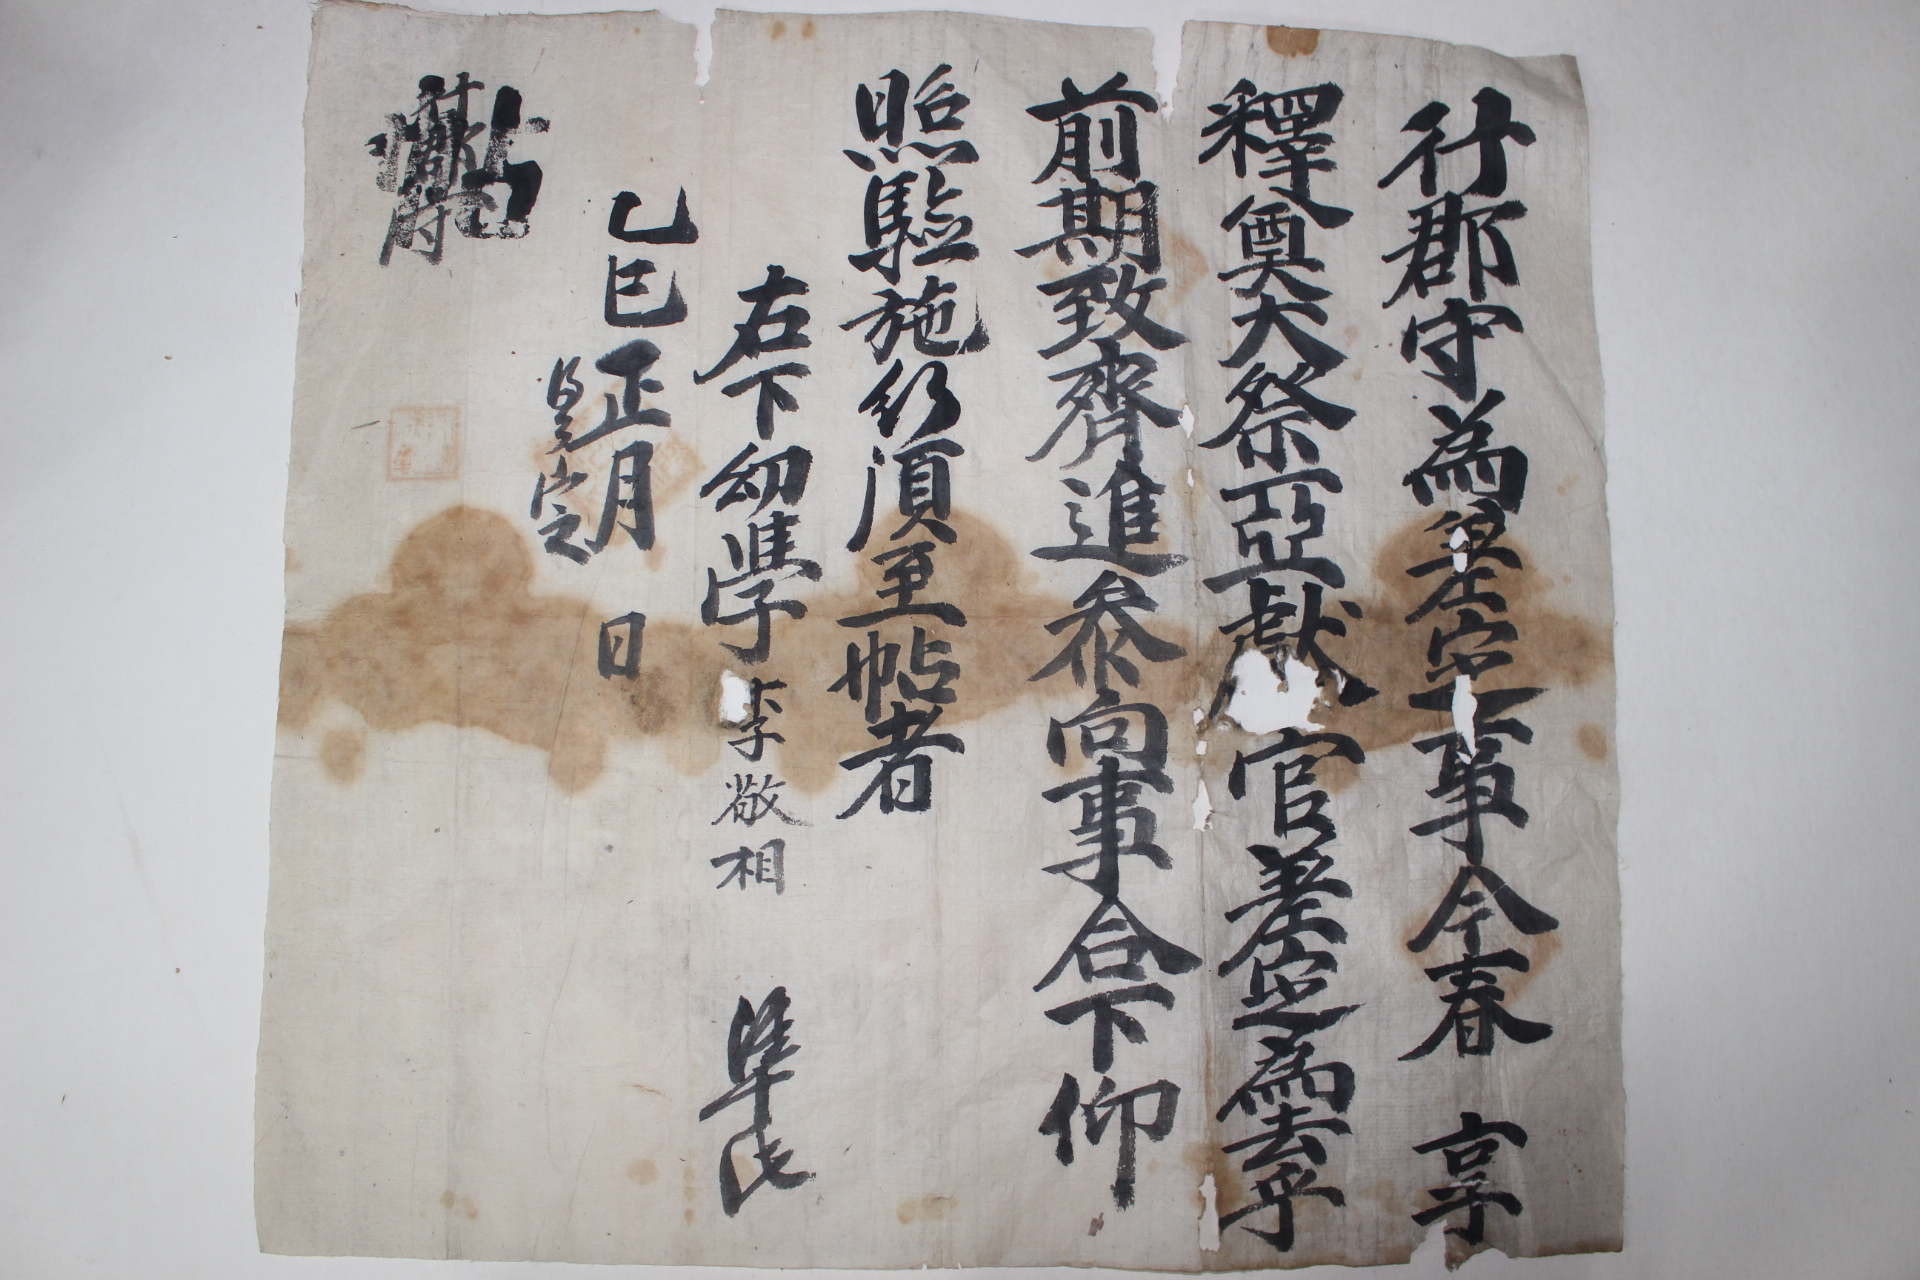 行郡守為差定事今春 享
釋奠大祭亞獻官差定為去乎
前期致齊進參向事合下仰
照驗施行須至帖者
右下幼學 李敬相 準此
乙巳正月 日
帖
行郡守